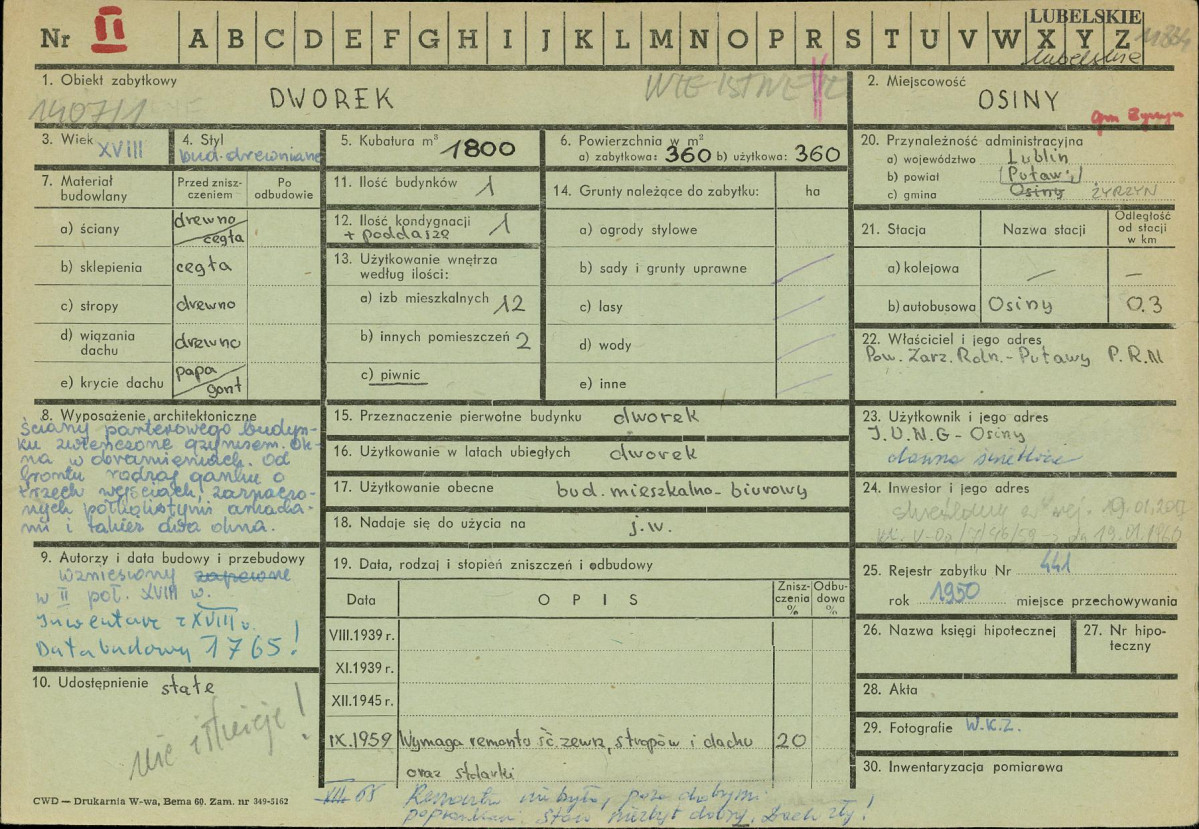 Nr II A B C D E F G H I J K L M N O P R S T U V W X Y Z
LUBELSKIE
lubelskie
1. Obiekt zabytkowy
DWOREK
1407/1
2. Miejscowość
OSINY
gm Żyrzyn
3. Wiek XVIII
4. Styl
bud. drewniane
5. Kubatura m³ 1800
6. Powierzchnia w m²
a) zabytkowa: 360 b) użytkowa: 360
7. Materiał budowlany
Przed zniszczeniem
Po odbudowie
a) ściany drewno / cegła
b) sklepienia cegła
c) stropy drewno
d) wiązania dachu drewno
e) krycie dachu papa / gont
8. Wyposażenie architektoniczne
ściany parterowego budyn-
ku zwieńczone gzymsem. Ok-
na w obramieniach. Od
frontu rodzaj ganku o
trzech wejściach, zaznaczo-
nych półkolistymi arkada-
mi i takież dwa okna.
9. Autorzy i data budowy i przebudowy
wzniesiony zapewne
w II poł. XVIII w.
Inwentarz z XVIII w.
Data budowy 1765!
10. Udostępnienie stałe
nie istnieje!
11. Ilość budynków 1
12. Ilość kondygnacji 1
+ poddasze
13. Użytkowanie wnętrza
według ilości:
a) izb mieszkalnych 12
b) innych pomieszczeń 2
c) piwnic
14. Grunty należące do zabytku: ha
a) ogrody stylowe
b) sady i grunty uprawne
c) lasy
d) wody
e) inne
15. Przeznaczenie pierwotne budynku dworek
16. Użytkowanie w latach ubiegłych dworek
17. Użytkowanie obecne bud. mieszkalno-biurowy
18. Nadaje się do użycia na j.w.
19. Data, rodzaj i stopień zniszczeń i odbudowy
Data OPIS Zniszczenia % Odbudowa %
VIII.1939 r.
XI.1939 r.
XII.1945 r.
IX.1959 Wymaga remontu śc. zewn, stropów i dachu 20
oraz stolarki
VIII 65 Remontu nie było, poza drobnymi
poprawkami. Stan niezbyt dobry. Dach zły!
20. Przynależność administracyjna
a) województwo Lublin
b) powiat Puławy
c) gmina Osiny ŻYRZYN
21. Stacja Nazwa stacji Odległość od stacji w km
a) kolejowa — —
b) autobusowa Osiny 0.3
22. Właściciel i jego adres
Pow. Zarz. Roln. - Puławy P.R.N
23. Użytkownik i jego adres
I.U.N.G - Osiny
24. Inwestor i jego adres
25. Rejestr zabytku Nr 441
rok 1950 miejsce przechowywania
26. Nazwa księgi hipotecznej
27. Nr hipoteczny
28. Akta
29. Fotografie W.K.Z.
30. Inwentaryzacja pomiarowa
CWD — Drukarnia W-wa, Bema 60. Zam. nr 349-5162